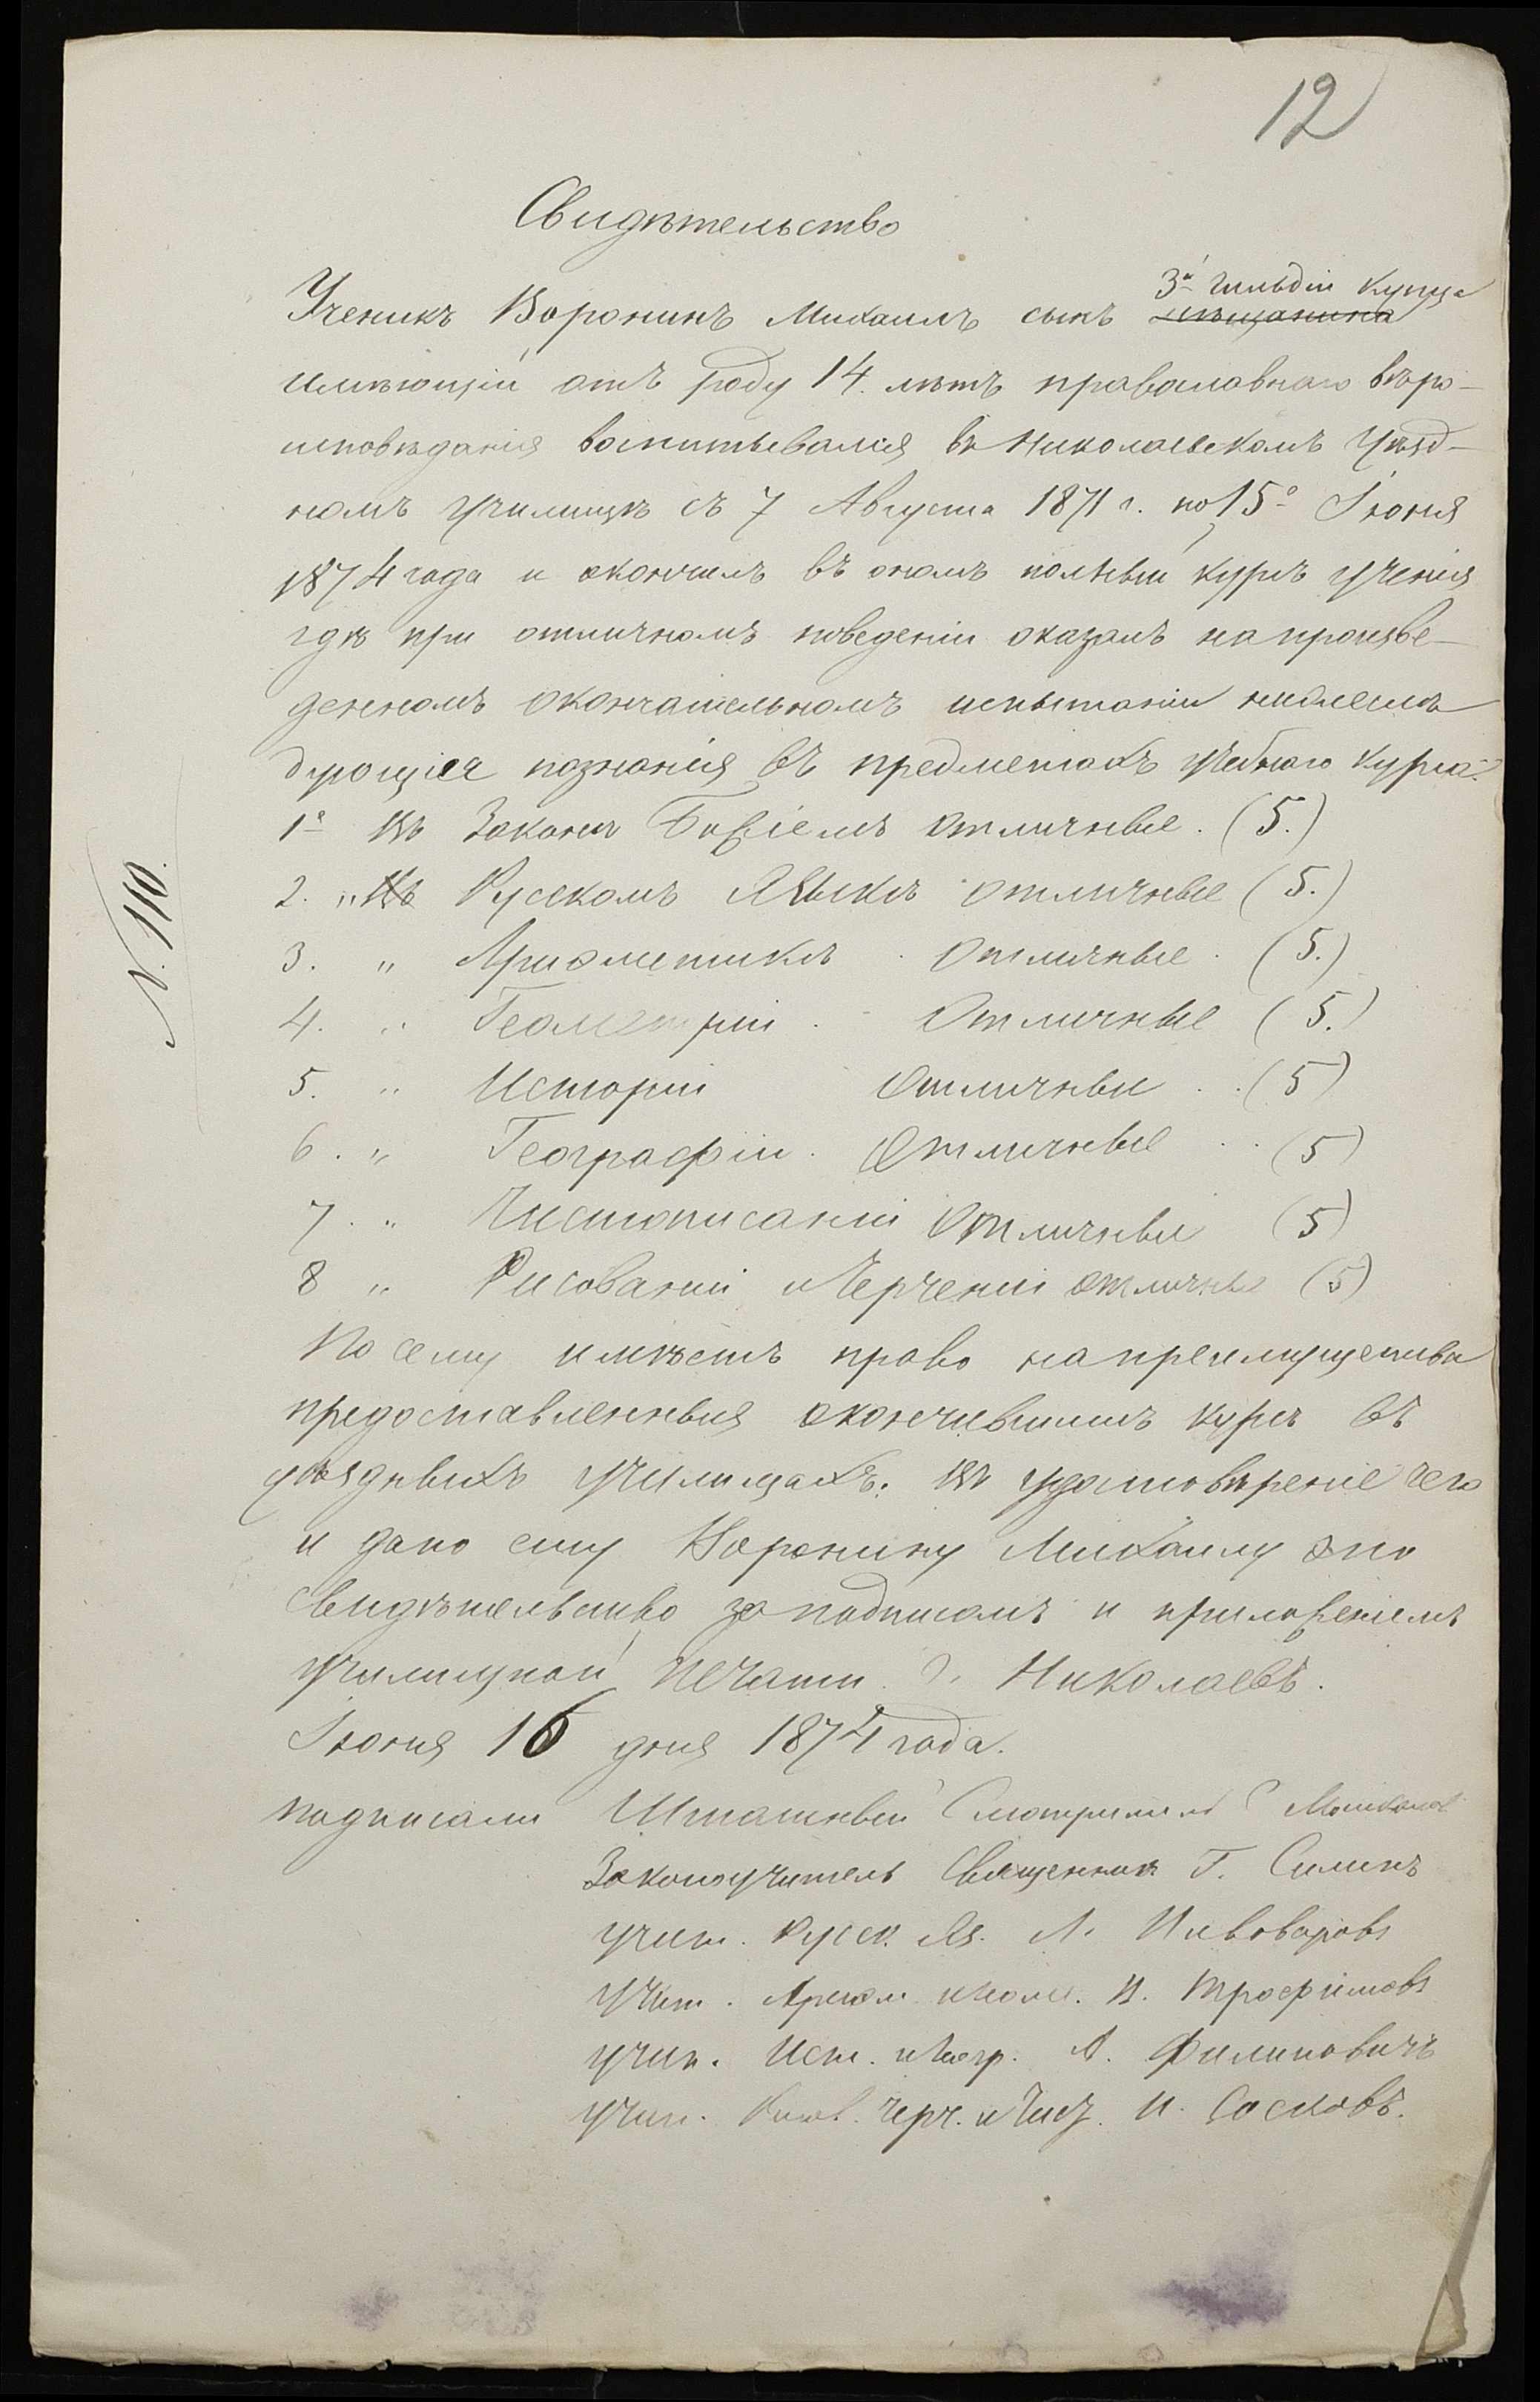 12
Свидѣтельство
3й гильдіи купца
Ученикъ Воронинъ Михаилъ сынъ мѣщанина
имѣющій отъ роду 14. лѣтъ православнаго вѣро-
исповѣданія воспитывался въ Николаевскомъ Уѣзд-
номъ училищѣ съ 7 Августа 1871 г. по 15е Іюня
1874 года и окончилъ въ ономъ полный курсъ ученія
гдѣ при отличномъ поведеніи оказалъ на произве-
денномъ окончательномъ испытаніи нижеслѣ
дующія познанія въ предметахъ учебнаго курса:
1е Въ Законѣ Божіемъ отличные. (5.)
2. „ Въ Русскомъ Языкѣ отличные (5.)
3. „ Ариѳметикѣ . Отличные . (5.)
4. „ Геометріи . Отличные (5.)
5. „ Исторіи Отличные . . (5)
6. „ Географіи . Отличные . . (5)
7. „ Чистописаніи Отличные (5)
8 „ Рисованіи и Черченіи отличные (5)
По сему имѣетъ право на преимущества
предоставленныя окончившимъ курсъ въ
уѣздныхъ училищахъ. Въ удостовѣреніе чего
и дано ему Воронину Михаилу это
свидѣтельство за подписомъ и приложеніемъ
училищной печати. Г. Николаевъ.
Іюня 16 дня 1874 года.
подписали Штатный Смотритель С
Законоучитель Священникъ Г. Силинъ
учит. Русск. Яз. Л. Пивоваровъ
учит. Ариѳм. и Геом. П. Трофимовъ
учит. Ист. и Геогр. А. Филиповичъ
учит. Рисов. Черч. и Чист. И. Сосновъ.
N. 110.